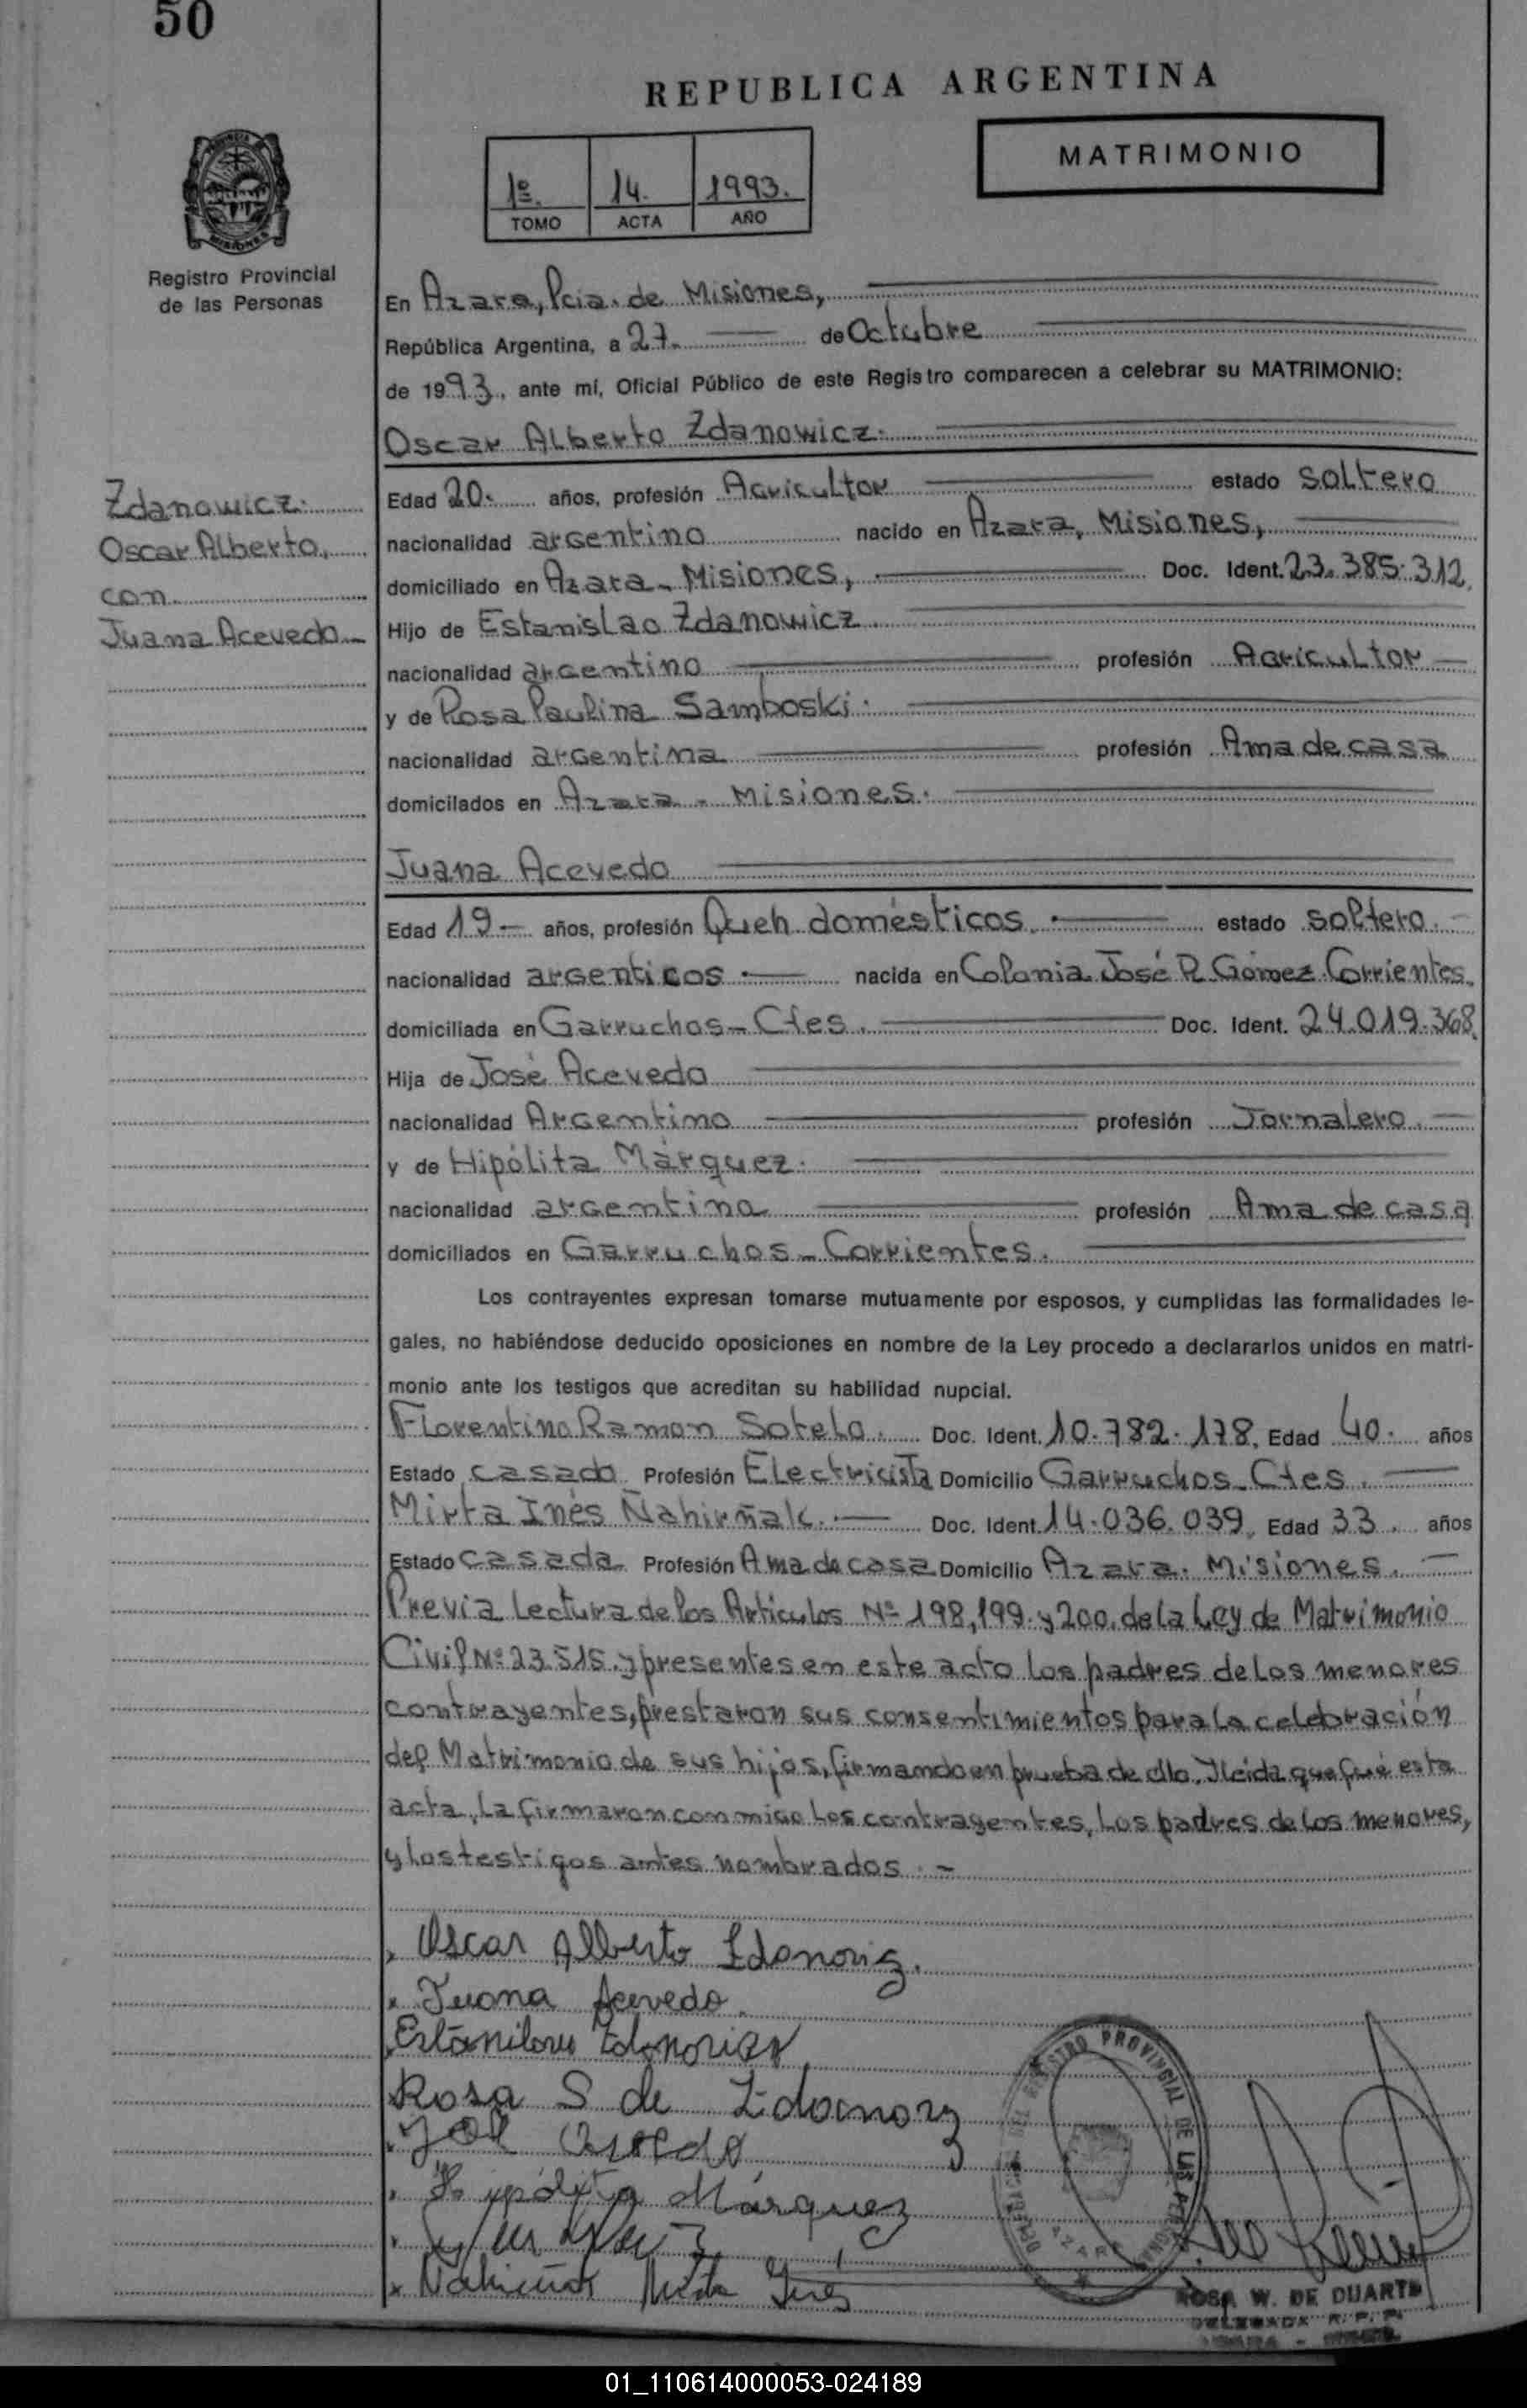 50
REPUBLICA ARGENTINA
MATRIMONIO
1º. 14. 1993.
TOMO ACTA AÑO
Registro Provincial
de las Personas
En Azara, Pcia. de Misiones,
República Argentina, a 27. de Octubre
de 1993, ante mí, Oficial Público de este Registro comparecen a celebrar su MATRIMONIO:
Oscar Alberto Zdanowicz.
Zdanowicz.
Oscar Alberto,
con
Juana Acevedo
Edad 20. años, profesión Agricultor estado soltero
nacionalidad argentino nacido en Azara, Misiones,
domiciliado en Azara - Misiones, Doc. Ident. 23.385.312.
Hijo de Estanislao Zdanowicz.
nacionalidad argentino profesión Agricultor
y de Rosa Paulina Samboski.
nacionalidad argentina profesión Ama de casa
domicilados en Azara - Misiones.
Juana Acevedo
Edad 19 - años, profesión Queh domésticos. estado soltero.
nacionalidad argenticos nacida en Colonia José R. Gómez Corrientes.
domiciliada en Garruchos - Ctes. Doc. Ident. 24.019.368.
Hija de José Acevedo
nacionalidad Argentino profesión Jornalero.
y de Hipólita Márquez.
nacionalidad argentina profesión Ama de casa
domiciliados en Garruchos - Corrientes.
Los contrayentes expresan tomarse mutuamente por esposos, y cumplidas las formalidades le-
gales, no habiéndose deducido oposiciones en nombre de la Ley procedo a declararlos unidos en matri-
monio ante los testigos que acreditan su habilidad nupcial.
Florentino Ramon Sotelo. Doc. Ident. 10.782.178. Edad 40. años
Estado casado Profesión Electricista Domicilio Garruchos - Ctes.
Mirta Inés Ñahirñak. Doc. Ident. 14.036.039. Edad 33. años
Estado casada Profesión Ama de casa Domicilio Azara. Misiones.
Previa lectura de los Articulos Nº 198, 199. y 200. de la Ley de Matrimonio
Civil Nº 23.515. y presentes en este acto los padres de los menores
contrayentes, prestaron sus consentimientos para la celebración
del Matrimonio de sus hijos, firmando en prueba de ello. Y leida que fué esta
acta, la firmaron conmigo los contrayentes, los padres de los menores,
y los testigos antes nombrados. -
Oscar Alberto Zdanoviz.
Juana Acevedo.
Rosa S de
Hipólita Márquez
Mirta Inés
REGISTRO PROVINCIAL DE LAS PERSONAS
AZARA
ROSA W. DE DUARTE
DELEGADA R. P. P.
01_110614000053-024189